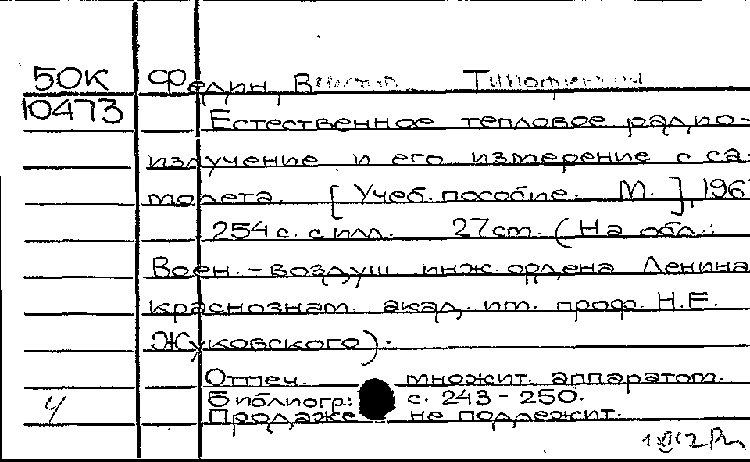 50К Федин, Виктор Тимофеевич
10473
Естественное тепловое радио-
излучение и его измерение с са-
молета. [Учеб. пособие. М.], 196
254 с. с илл. 27 см. (На обл.:
Воен.-воздуш. инж. ордена Ленина
краснознам. акад. им. проф. Н.Е.
Жуковского).
Отпеч. множит. аппаратом.
Библиогр: с. 243-250.
Продаже не подлежит.